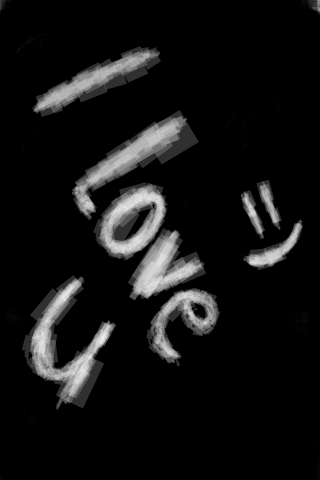 I
Love
u
=)